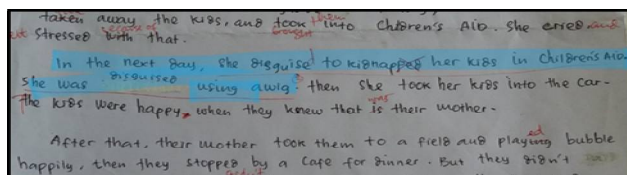 taken away the kids, and took them into Children's Aid. She cried, and
stressed because of with that. brought
In the next day, she disguised to kidnapped her kids in Children's Aid.
she was disguised using a wig. then she took her kids into the car.
the kids were happy, when they knew that is was their mother.
After that, their mother took them to a field and playing ed bubble
happily, then they stopped by a cafe for dinner. But they didn't